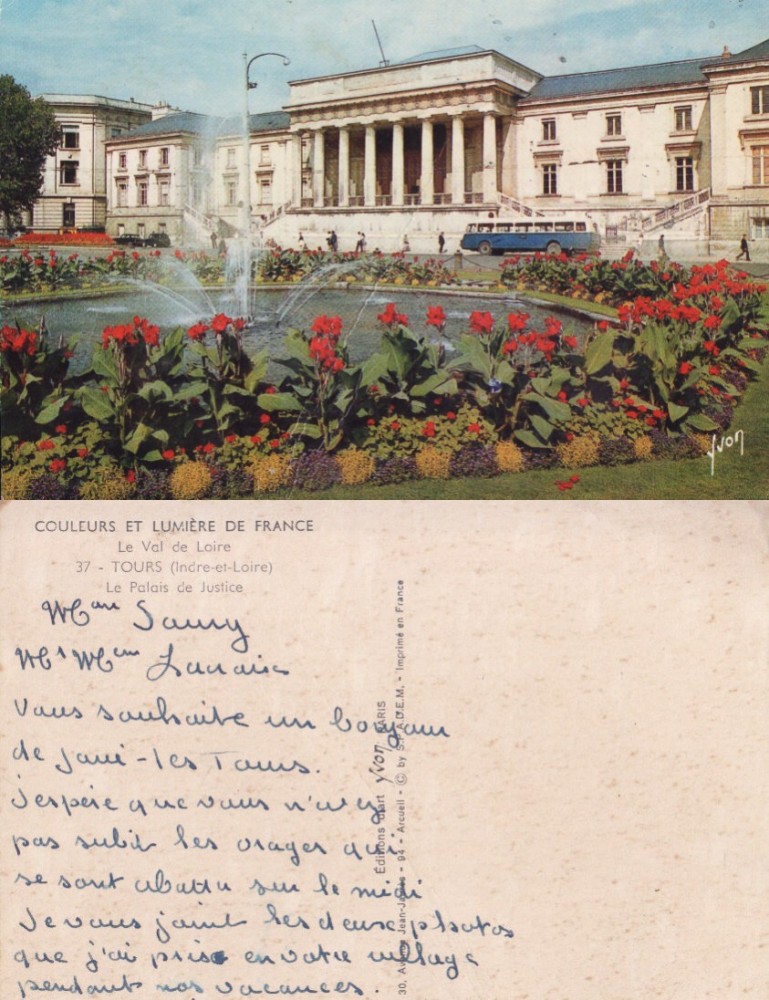 yvon
COULEURS ET LUMIÈRE DE FRANCE
Le Val de Loire
37 - TOURS (Indre-et-Loire)
Le Palais de Justice
Mme
Mr Mme
Vous souhaite un bonjour
de Joué-les Tours.
J'espère que vous n'avez
pas subit les orages qui
se sont abattu sur le midi
Je vous joint les deux photos
que j'ai prise en votre village
pendant nos vacances.
Éditions d'art yvon PARIS
30, Avenue Jean-Jaurès - 94 - Arcueil - © by S.P.A.D.E.M. - Imprimé en France